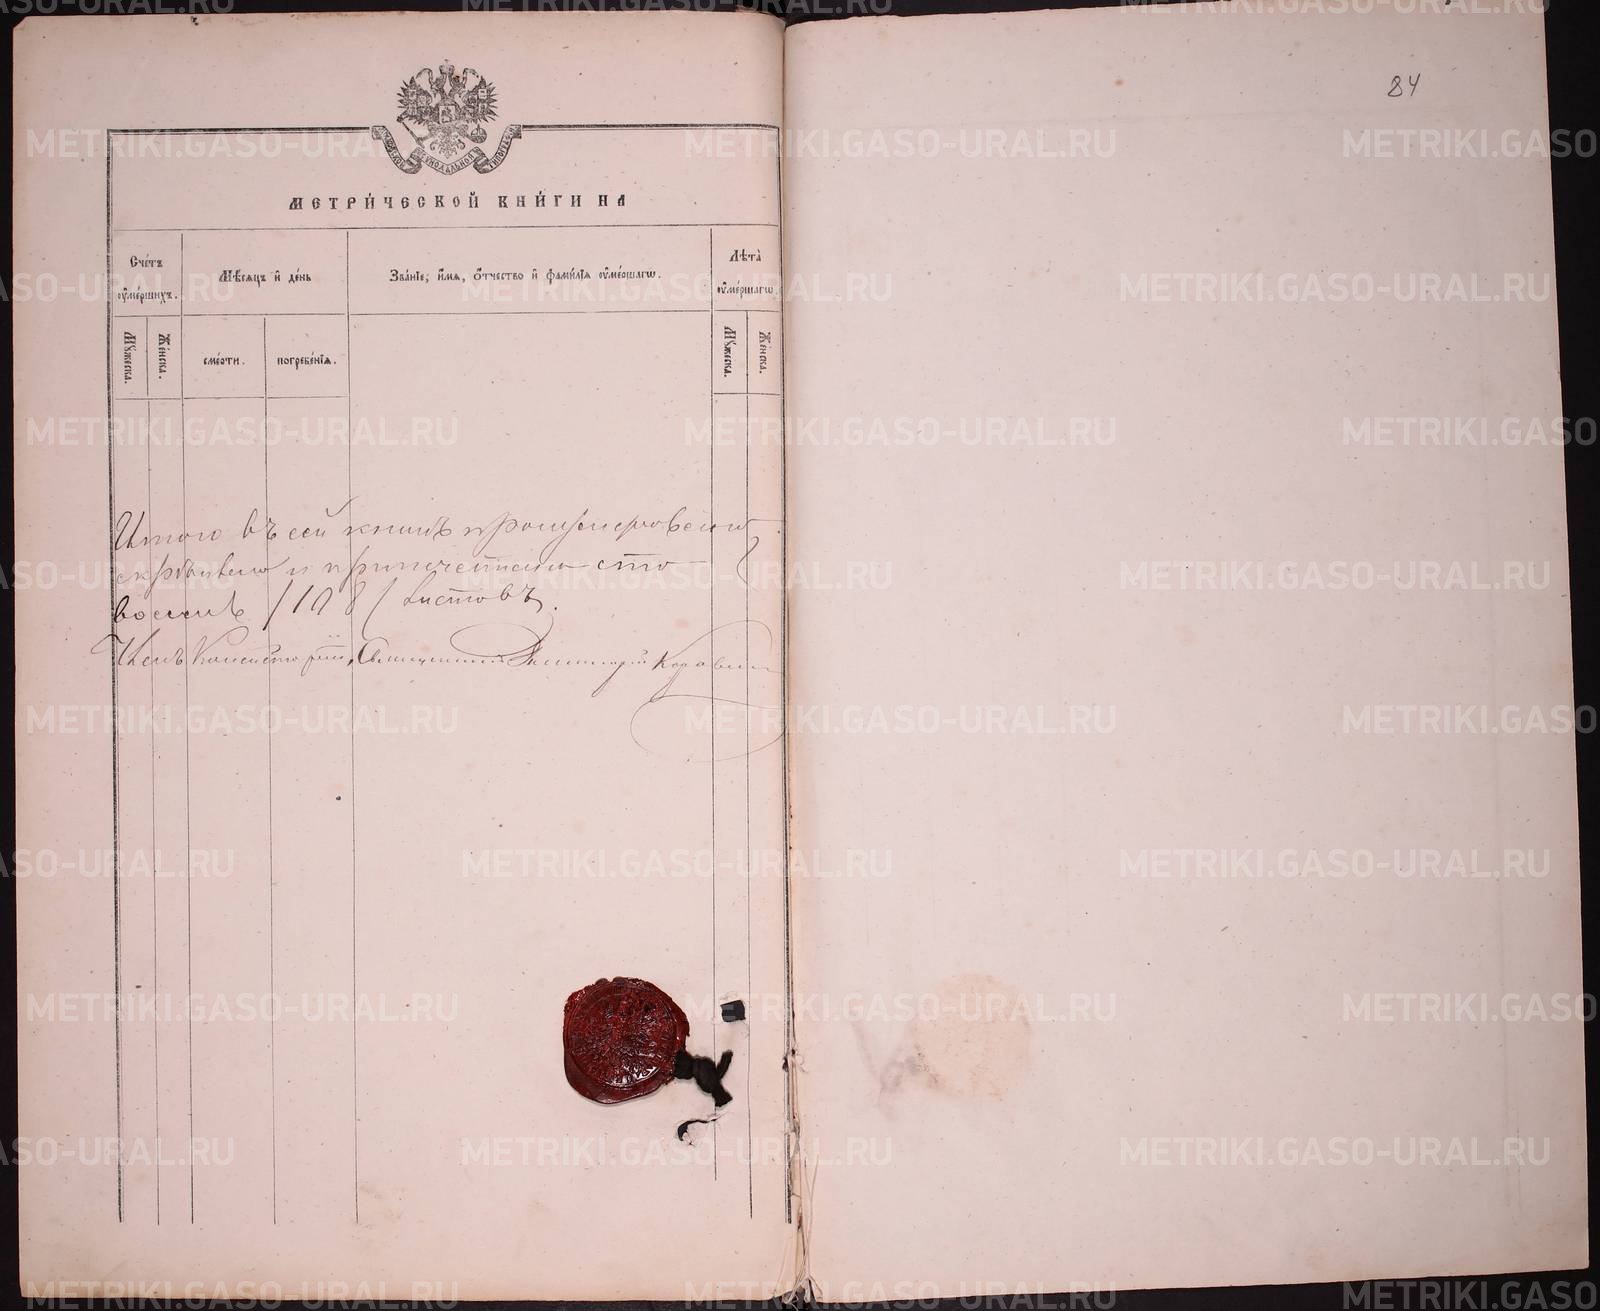 84
МЕТРИ́ЧЕСКОЙ КНИ́ГИ НА
Сче́тъ ѹ҆ме́ршихъ.
Мѣ́сяцъ и҆ де́нь
Зва́нїе, и҆́мя, о҆́тчество и҆ фами́лїя ѹ҆ме́ршагѡ.
Лѣта̀ ѹ҆ме́ршагѡ.
Мꙋ́жеска.
Же́нска.
сме́рти.
погребе́нїя.
Мꙋ́жеска.
Же́нска.
Итого въ сей книгѣ пронумеровано
скрѣплено и припечатано сто
восемь /108/ листовъ.
Членъ Консисторіи, Священникъ
METRIKI.GASO-URAL.RU